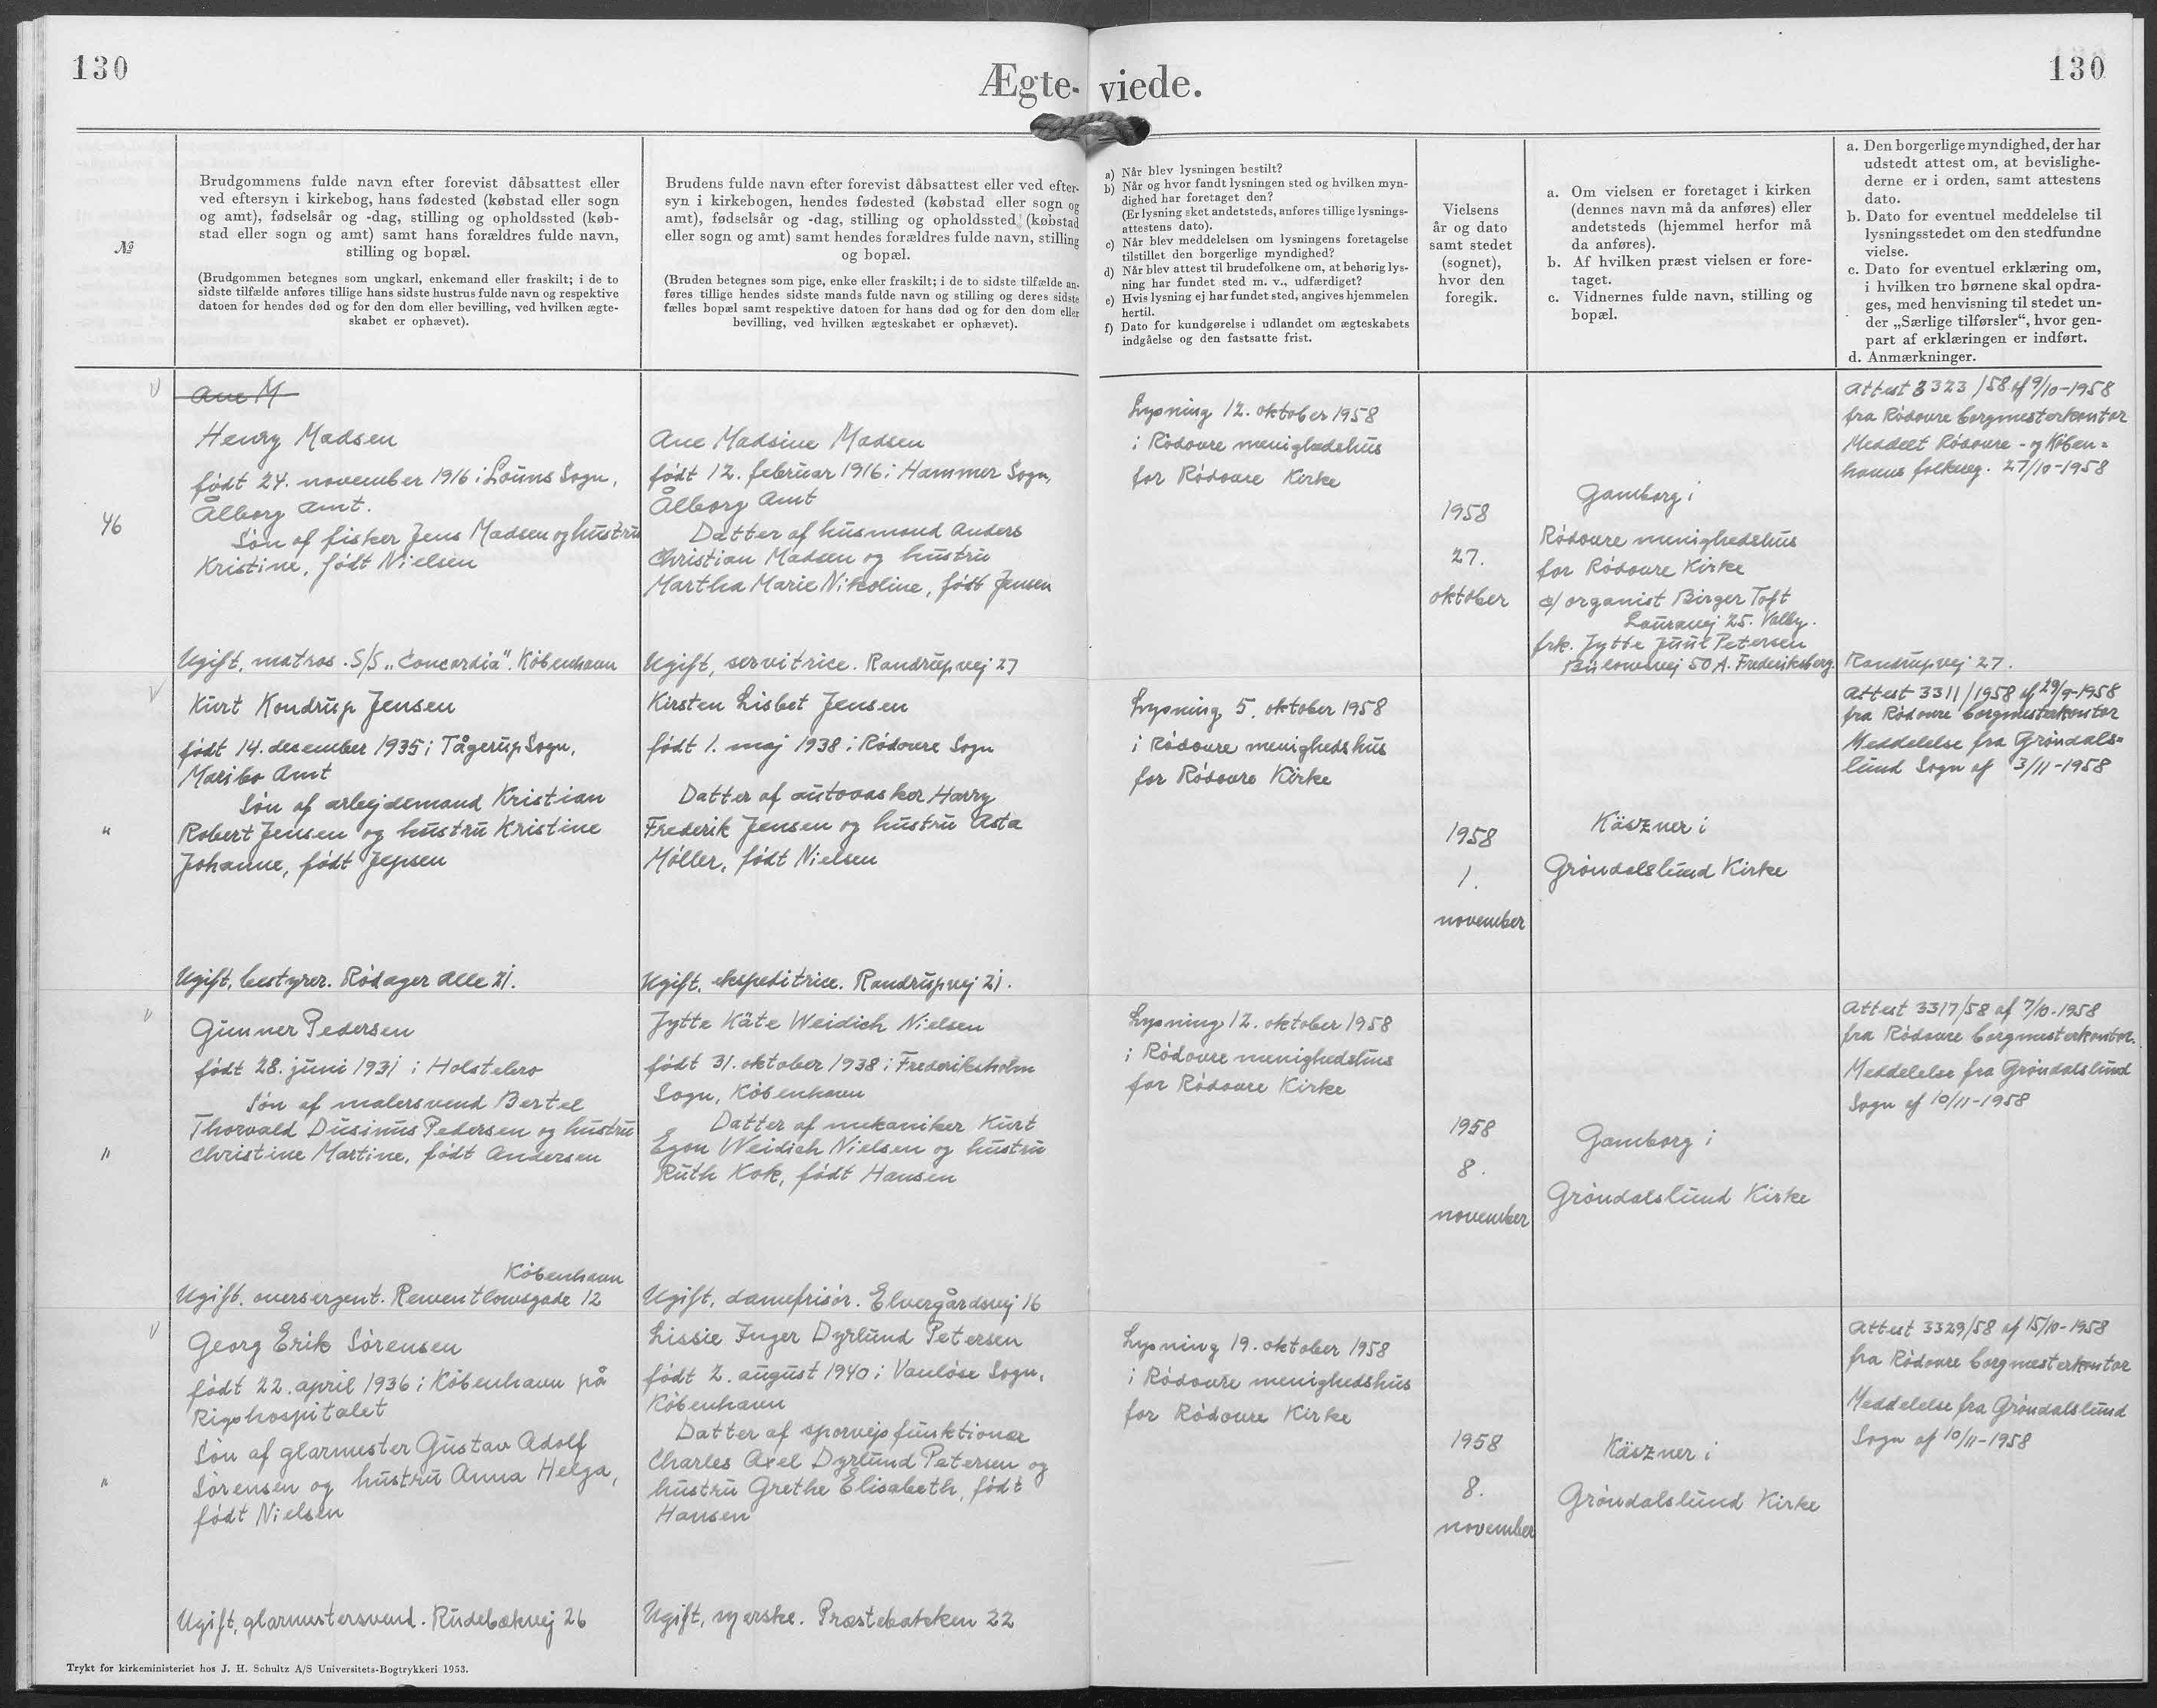 130
130
Ægte- viede.
№
Brudgommens fulde navn efter forevist dåbsattest eller
ved eftersyn i kirkebog, hans fødested (købstad eller sogn
og amt), fødselsår og -dag, stilling og opholdssted (køb-
stad eller sogn og amt) samt hans forældres fulde navn,
stilling og bopæl.
(Brudgommen betegnes som ungkarl, enkemand eller fraskilt; i de to
sidste tilfælde anføres tillige hans sidste hustrus fulde navn og respektive
datoen for hendes død og for den dom eller bevilling, ved hvilken ægte-
skabet er ophævet).
Brudens fulde navn efter forevist dåbsattest eller ved efter-
syn i kirkebogen, hendes fødested (købstad eller sogn og
amt), fødselsår og -dag, stilling og opholdssted (købstad
eller sogn og amt) samt hendes forældres fulde navn, stilling
og bopæl.
(Bruden betegnes som pige, enke eller fraskilt; i de to sidste tilfælde an-
føres tillige hendes sidste mands fulde navn og stilling og deres sidste
fælles bopæl samt respektive datoen for hans død og for den dom eller
bevilling, ved hvilken ægteskabet er ophævet).
a) Når blev lysningen bestilt?
b) Når og hvor fandt lysningen sted og hvilken myn-
dighed har foretaget den?
(Er lysning sket andetsteds, anføres tillige lysnings-
attestens dato).
c) Når blev meddelelsen om lysningens foretagelse
tilstillet den borgerlige myndighed?
d) Når blev attest til brudefolkene om, at behørig lys-
ning har fundet sted m. v., udfærdiget?
e) Hvis lysning ej har fundet sted, angives hjemmelen
hertil.
f) Dato for kundgørelse i udlandet om ægteskabets
indgåelse og den fastsatte frist.
Vielsens
år og dato
samt stedet
(sognet),
hvor den
foregik.
a. Om vielsen er foretaget i kirken
(dennes navn må da anføres) eller
andetsteds (hjemmel herfor må
da anføres).
b. Af hvilken præst vielsen er fore-
taget.
c. Vidnernes fulde navn, stilling og
bopæl.
a. Den borgerlige myndighed, der har
udstedt attest om, at bevislighe-
derne er i orden, samt attestens
dato.
b. Dato for eventuel meddelelse til
lysningsstedet om den stedfundne
vielse.
c. Dato for eventuel erklæring om,
i hvilken tro børnene skal opdra-
ges, med henvisning til stedet un-
der „Særlige tilførsler“, hvor gen-
part af erklæringen er indført.
d. Anmærkninger.
46
Ane M
Henry Madsen
født 24. november 1916 i Louns Sogn,
Ålborg Amt.
Søn af fisker Jens Madsen og hustru
Kristine, født Nielsen
Ugift, matros. S/S „Concordia". København
Ane Madsine Madsen
født 12. februar 1916 i Hammer Sogn,
Ålborg Amt
Datter af husmand Anders
Christian Madsen og hustru
Martha Marie Nikoline, født Jensen
Ugift, servitrice. Randrupvej 27
Lysning 12. oktober 1958
i Rødovre menighedshus
for Rødovre Kirke
1958
27.
oktober
Gamborg i
Rødovre menighedshus
for Rødovre Kirke
c/ organist Birger Toft
Lauravej 25. Valby.
frk. Jytte Juul Petersen
Bülowsvej 50 A. Frederiksberg.
Attest 3323/58 af 9/10-1958
fra Rødovre borgmesterkontor
Meddelt Rødovre - og Køben=
havns folkereg. 27/10-1958
Randrupvej 27.
"
Kurt Kondrup Jensen
født 14. december 1935 i Tågerup Sogn,
Maribo Amt
Søn af arbejdsmand Kristian
Robert Jensen og hustru Kristine
Johanne, født Jepsen
Ugift, bestyrer. Rødager Alle 21.
Kirsten Lisbet Jensen
født 1. maj 1938 i Rødovre Sogn
Datter af autovasker Harry
Frederik Jensen og hustru Asta
Møller, født Nielsen
Ugift, ekspeditrice. Randrupvej 21.
Lysning 5. oktober 1958
i Rødovre menighedshus
for Rødovre Kirke
1958
1.
november
Käszner i
Grøndalslund Kirke
Attest 3311/1958 af 29/9-1958
fra Rødovre borgmesterkontor
Meddelelse fra Grøndals=
lund Sogn af 3/11-1958
"
Gunner Pedersen
født 28. juni 1931 i Holstebro
Søn af malersvend Bertel
Thorvald Dusinus Pedersen og hustru
Christine Martine, født Andersen
København
Ugift, oversergent. Reventlowsgade 12
Jytte Käte Weidich Nielsen
født 31. oktober 1938 i Frederiksholm
Sogn, København
Datter af mekaniker Kurt
Egon Weidich Nielsen og hustru
Ruth Kok, født Hansen
Ugift, damefrisør. Elvergårdsvej 16
Lysning 12. oktober 1958
i Rødovre menighedshus
for Rødovre Kirke
1958
8.
november
Gamborg i
Grøndalslund Kirke
Attest 3317/58 af 7/10-1958
fra Rødovre borgmesterkontor.
Meddelelse fra Grøndalslund
Sogn af 10/11-1958
"
Georg Erik Sørensen
født 22. april 1936 i København på
Rigshospitalet
Søn af glarmester Gustav Adolf
Sørensen og hustru Anna Helga,
født Nielsen
Ugift, glarmestersvend. Rudebækvej 26
Lissie Inger Dyrlund Petersen
født 2. august 1940 i Vanløse Sogn,
København
Datter af sporvejsfunktionær
Charles Axel Dyrlund Petersen og
hustru Grethe Elisabeth, født
Hansen
Ugift, syerske. Præstebakken 22
Lysning 19. oktober 1958
i Rødovre menighedshus
for Rødovre Kirke
1958
8.
november
Käszner i
Grøndalslund Kirke
Attest 3329/58 af 15/10-1958
fra Rødovre borgmesterkontor
Meddelelse fra Grøndalslund
Sogn af 10/11-1958
Trykt for kirkeministeriet hos J. H. Schultz A/S Universitets-Bogtrykkeri 1953.